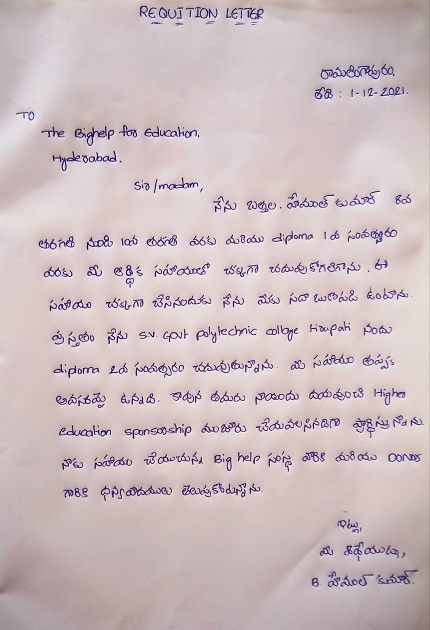 REQUITION LETTER
రామలింగాపురం,
తేది : 1-12-2021.
TO
The Bighelp for Education,
Hyderabad.
Sir/madam,
నేను బత్తల. హేమంత్ కుమార్ 8వ
తరగతి నుండి 10వ తరగతి వరకు మరియు diploma 1వ సంవత్సరం
వరకు మీ ఆర్థిక సహాయంతో చక్కగా చదువుకోగలిగాను. ఈ
సహాయం చక్కగా చేసినందుకు నేను మీకు సదా ఋణపడి ఉంటాను.
ప్రస్తుతం నేను S.V. Govt polytechnic college tirupati నందు
diploma 2వ సంవత్సరం చదువుతున్నాను. మీ సహాయం తప్పక
అవసరమై ఉన్నది. కావున తమరు నాయందు దయవుంచి Higher
education sponsorship మంజూరు చేయవలసినదిగా ప్రార్థిస్తున్నాను.
నాకు సహాయం చేయుచున్న Big help సంస్థ వారికి మరియు Donor
గారికి ధన్యవాదములు తెలుపుకొంటున్నాను.
ఇట్లు,
మీ విధేయుడు,
B హేమంత్ కుమార్.